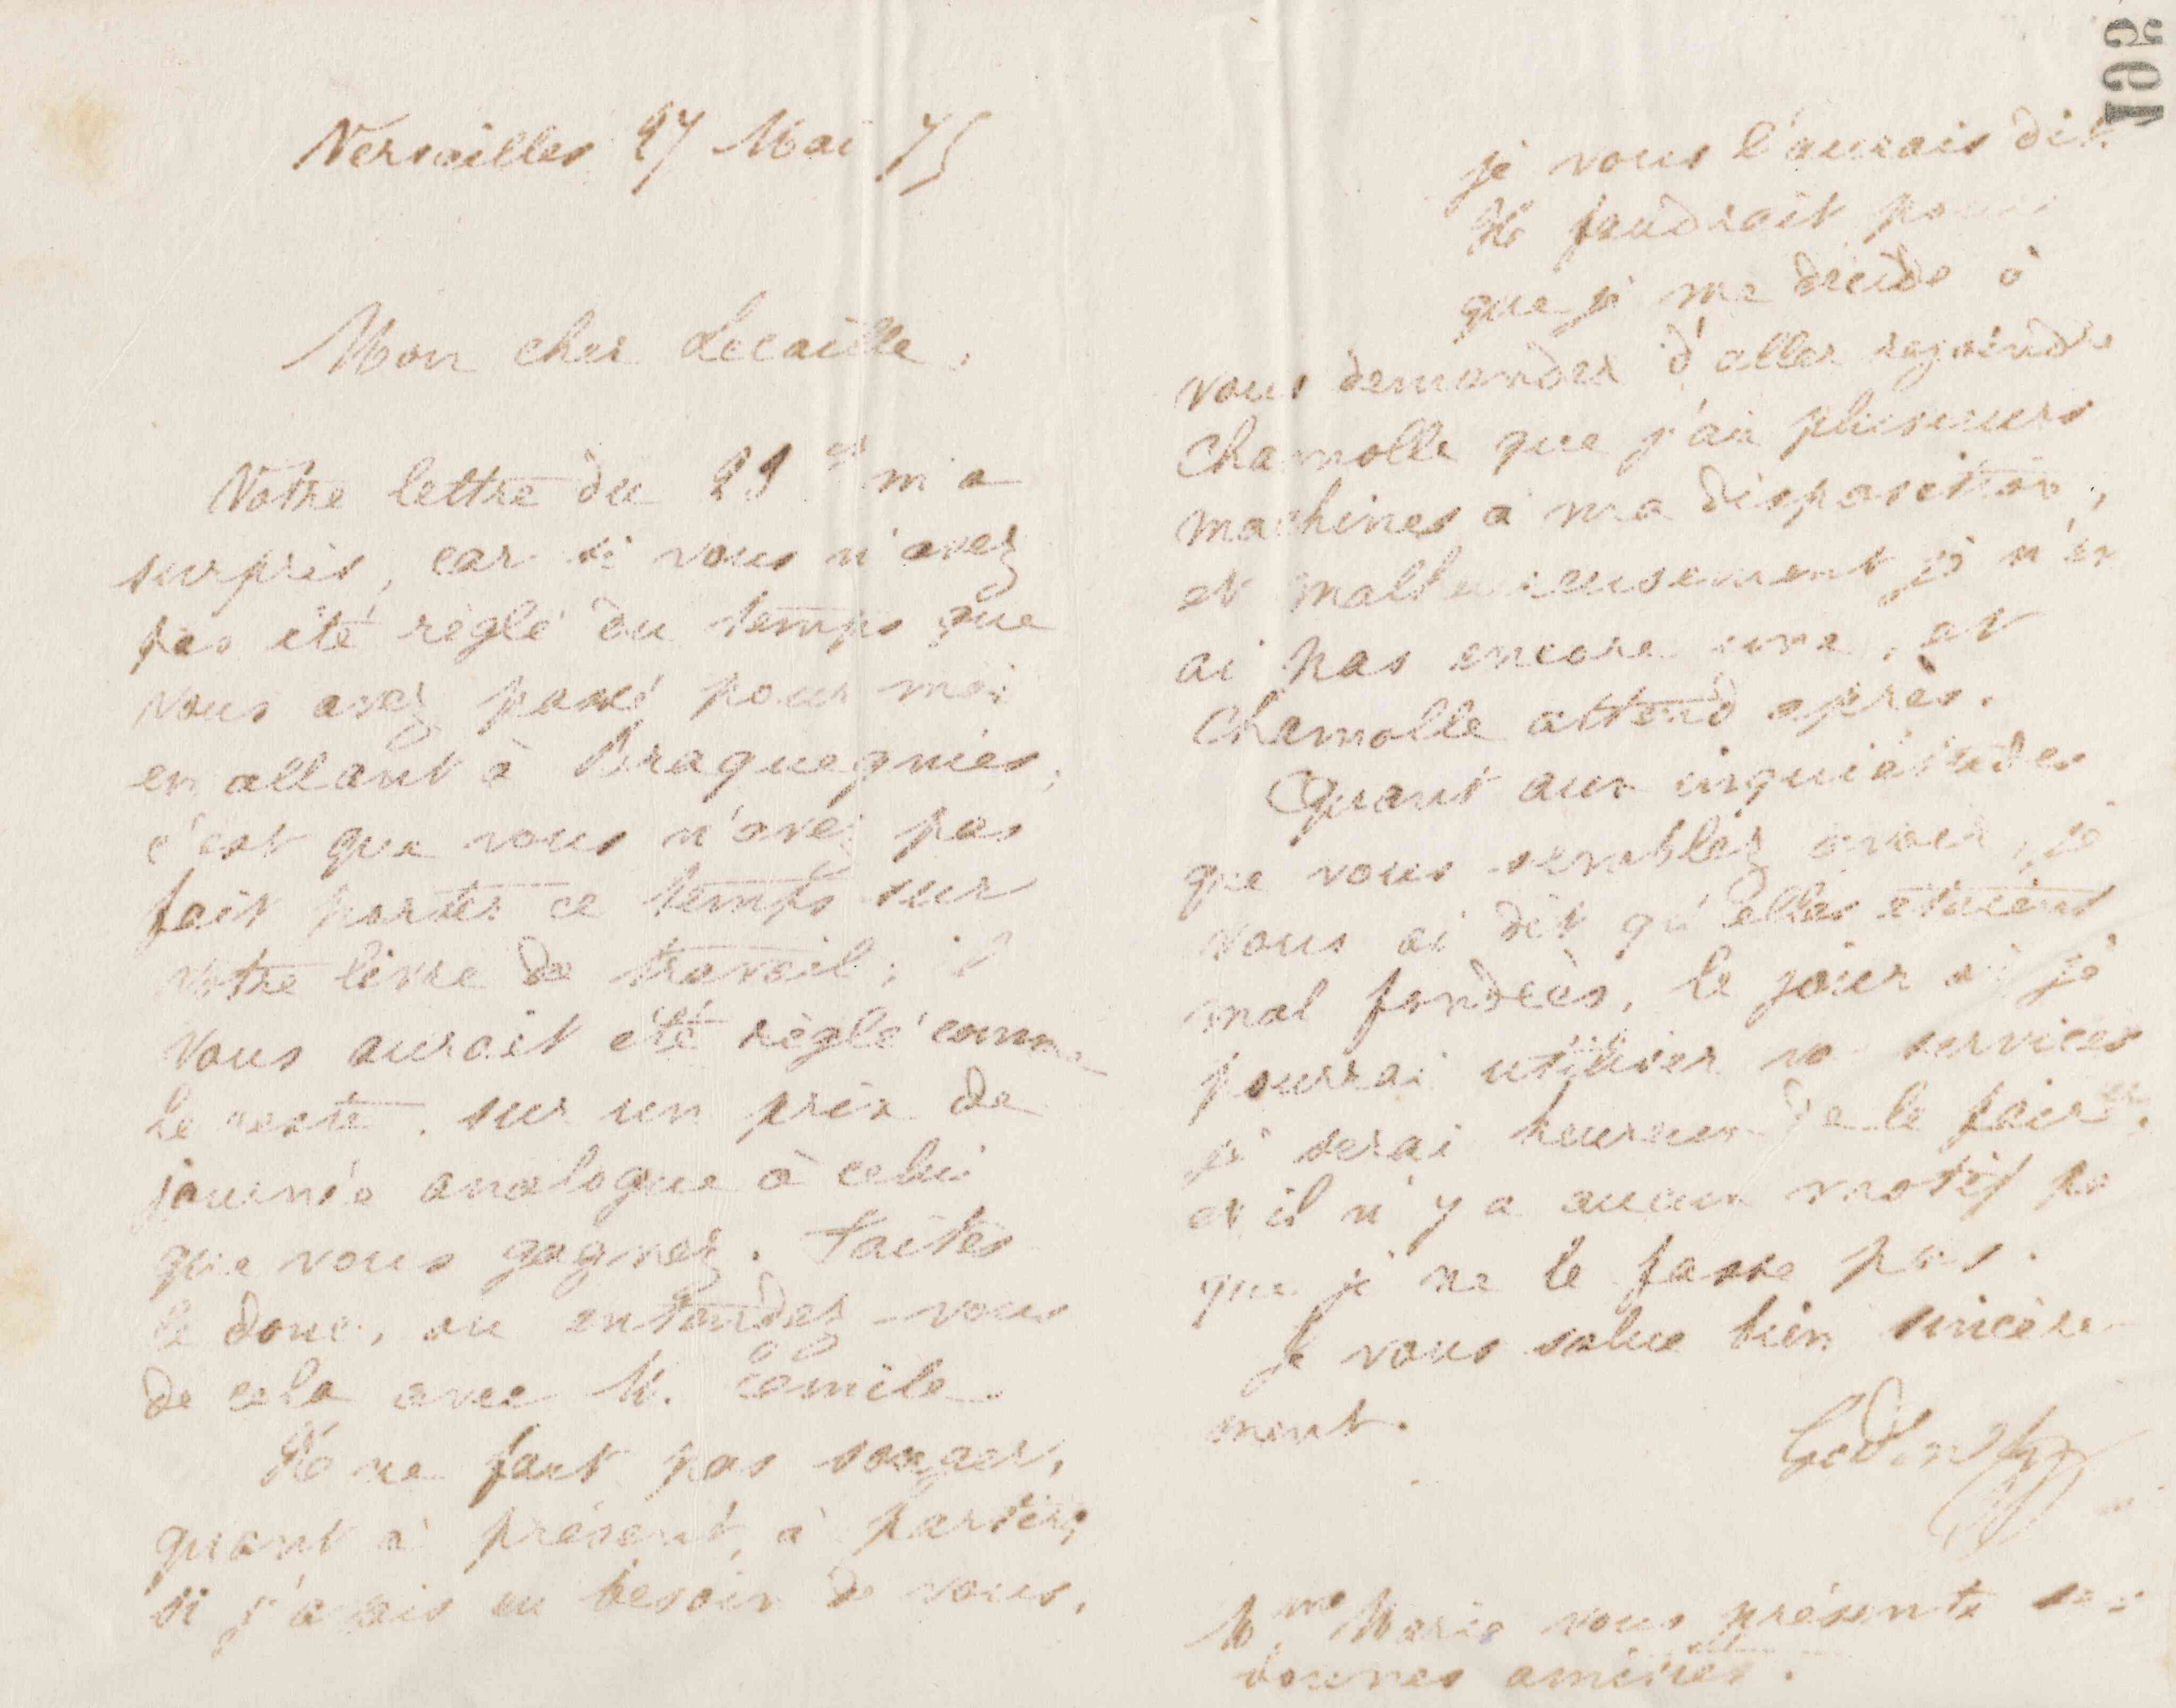 Versailles 27 Mai 75
Mon cher Lecaille,
Votre lettre du 21 ct m'a
surpris, car si vous n'avez
pas été réglé du temps que
vous avez passé pour moi
en allant à Braquegnies,
c'est que vous n'avez pas
fait porter ce temps sur
votre livre de travail; il
vous aurait été réglé comme
le reste, sur un prix de
journée analogue à celui
que vous gagnez. Faites
le donc, ou entendez-vous
de cela avec M. Émile.
Il ne faut pas songer,
quant à présent, à partir,
si j'avais eu besoin de vous,
je vous l'aurais dit.
Il faudrait pour
que je me décide à
vous demander d'aller rejoindre
Chamolle que j'ai plusieurs
machines à ma disposition,
et malheureusement je n'en
ai pas encore une, et
Chamolle attend après.
Quant aux inquiétudes
que vous semblez avoir, je
vous ai dit qu'elles étaient
mal fondées, le jour où je
pourrai utiliser vos services
je serai heureux de le faire,
et il n'y a aucun motif pr
que je ne le fasse pas.
Je vous salue bien sincère-
ment.
Godin
Mme Marie vous présente ses
bonnes amitiés.
195